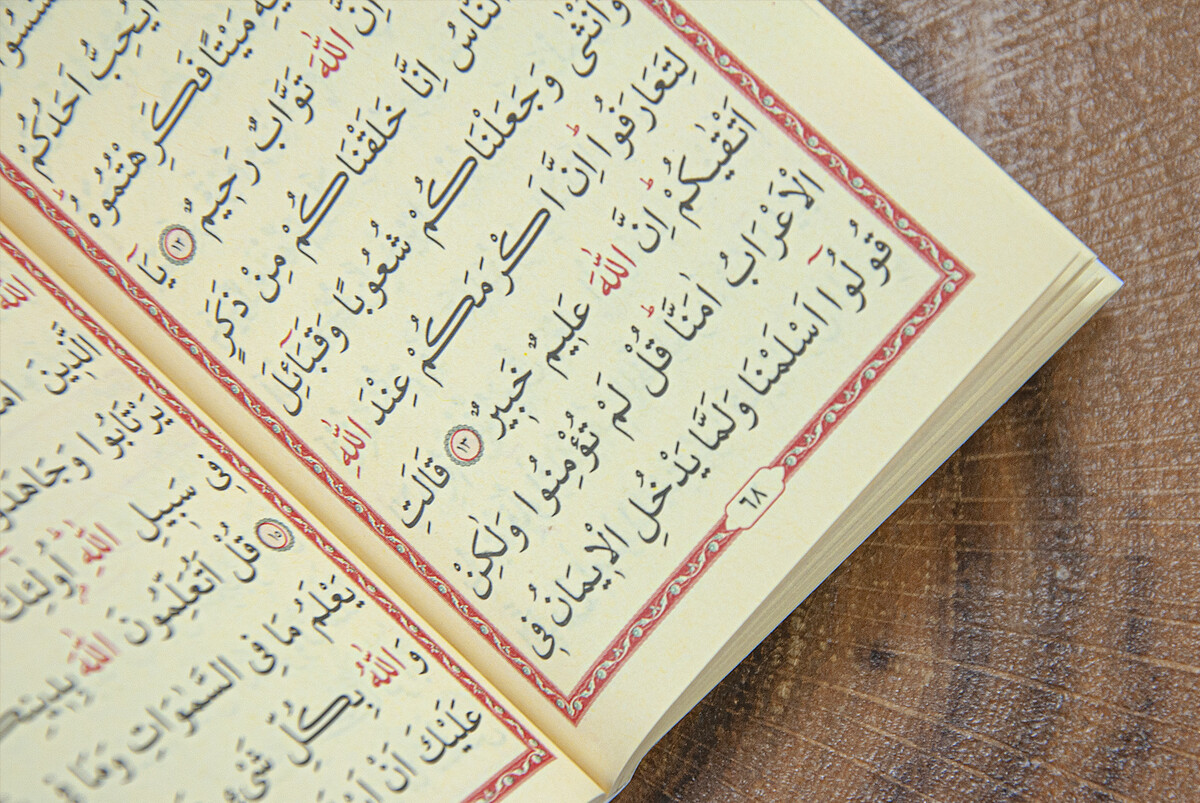 اَيُحِبُّ اَحَدُكُمْ
مَيْتًا فَكَرِهْتُمُوهُ
اِنَّ اللّٰهَ تَوَّابٌ رَحِيمٌ ١٢ يَٓا
النَّاسُ اِنَّا خَلَقْنَاكُمْ مِنْ ذَكَرٍ
وَاُنْثٰى وَجَعَلْنَاكُمْ شُعُوبًا وَقَبَٓائِلَ
لِتَعَارَفُوا اِنَّ اَكْرَمَكُمْ عِنْدَ اللّٰهِ
اَتْقٰيكُمْ اِنَّ اللّٰهَ عَلِيمٌ خَبِيرٌ ١٣ قَالَتِ
الْاَعْرَابُ اٰمَنَّا قُلْ لَمْ تُؤْمِنُوا وَلٰكِنْ
قُولُٓوا اَسْلَمْنَا وَلَمَّا يَدْخُلِ الْاِيمَانُ فِى
٦٨
اللّٰهَ
الَّذِينَ
يَرْتَابُوا وَجَاهَدُوا
فِى سَبِيلِ اللّٰهِ اُولٰٓئِكَ
١٥ قُلْ اَتُعَلِّمُونَ اللّٰهَ
يَعْلَمُ مَا فِى السَّمٰوَاتِ وَمَا
وَاللّٰهُ بِكُلِّ شَىْءٍ
عَلَيْكَ اَنْ